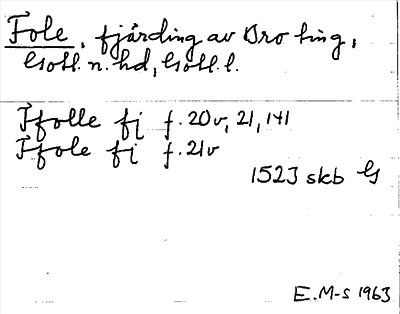 Fole, fjärding av Bro ting,
Gotl. n. hd, Gotl. l.
Ffolle fj f. 20v, 21, 141
Ffole fj f. 21v
1523 skb G
E. M-s 1963